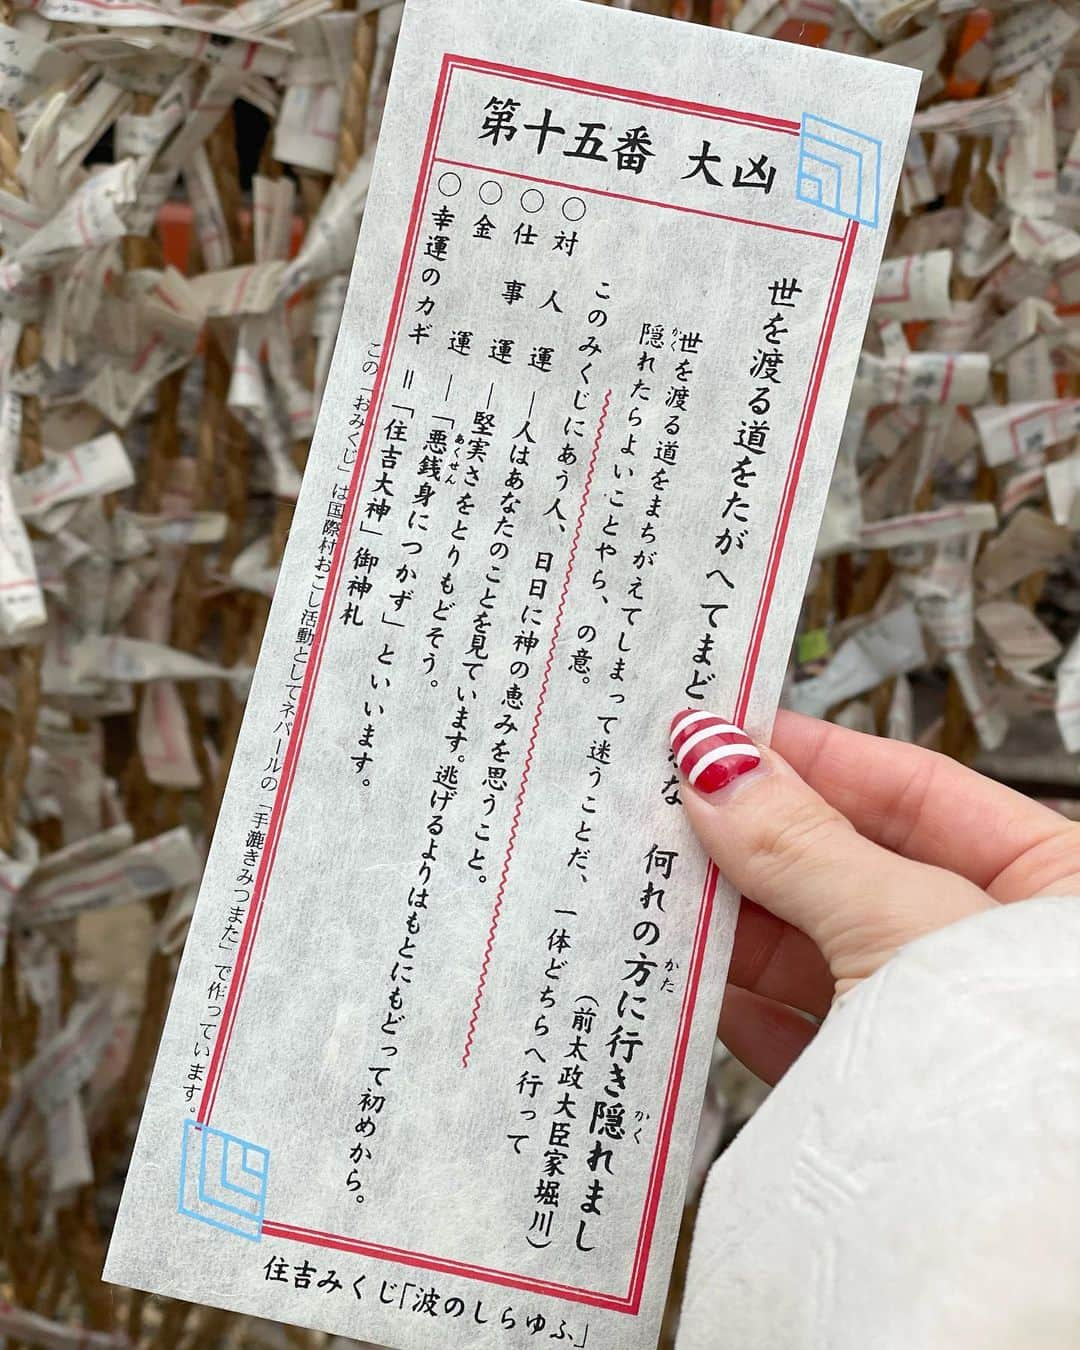 第十五番 大凶
世を渡る道をたがへてまど な 何れの方に行き隠れまし
かた
かく
(前太政大臣家堀川)
世を渡る道をまちがえてしまって迷うことだ、一体どちらへ行って
隠れたらよいことやら、の意。
かく
このみくじにあう人、日日に神の恵みを思うこと。
○対人運―人はあなたのことを見ています。逃げるよりはもとにもどって初めから。
○仕事運―堅実さをとりもどそう。
○金運―「悪銭身につかず」といいます。
あくせん
○幸運のカギ=「住吉大神」御神札
この「おみくじ」は国際村おこし活動としてネパールの「手漉きみつまた」で作っています。
住吉みくじ「波のしらゆふ」